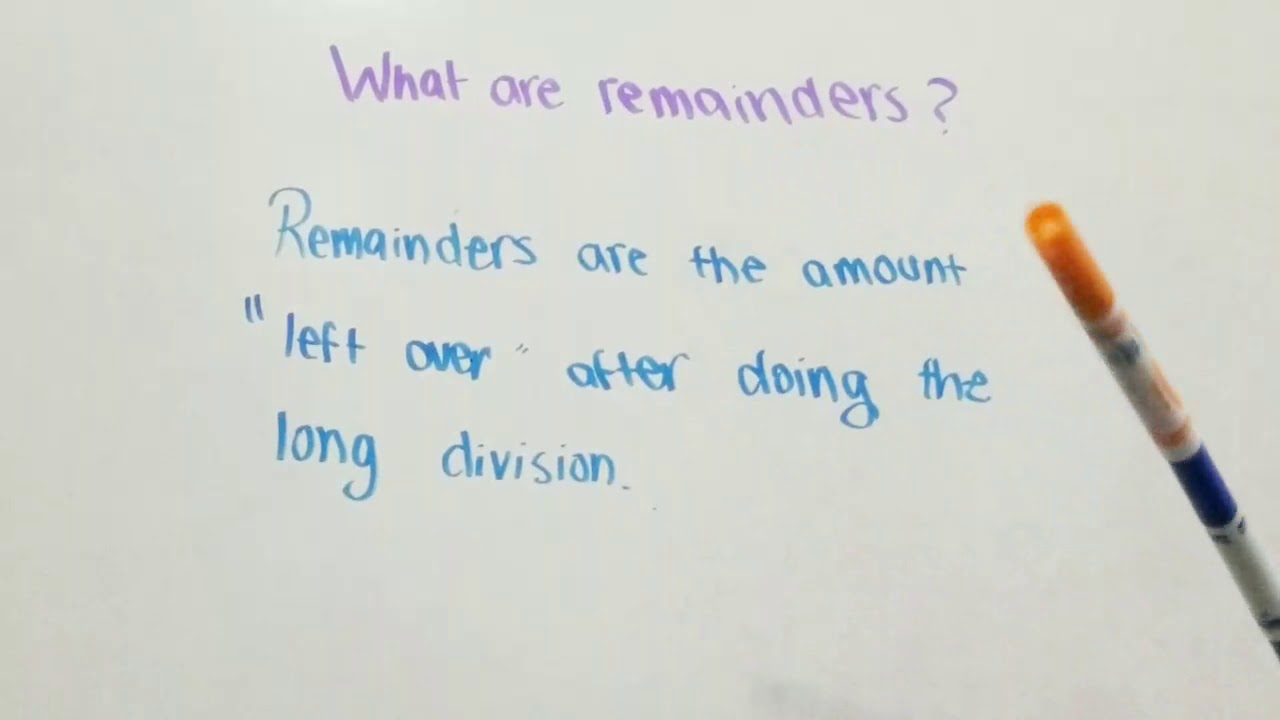 What are remainders?
Remainders are the amount
"left over" after doing the
long division.